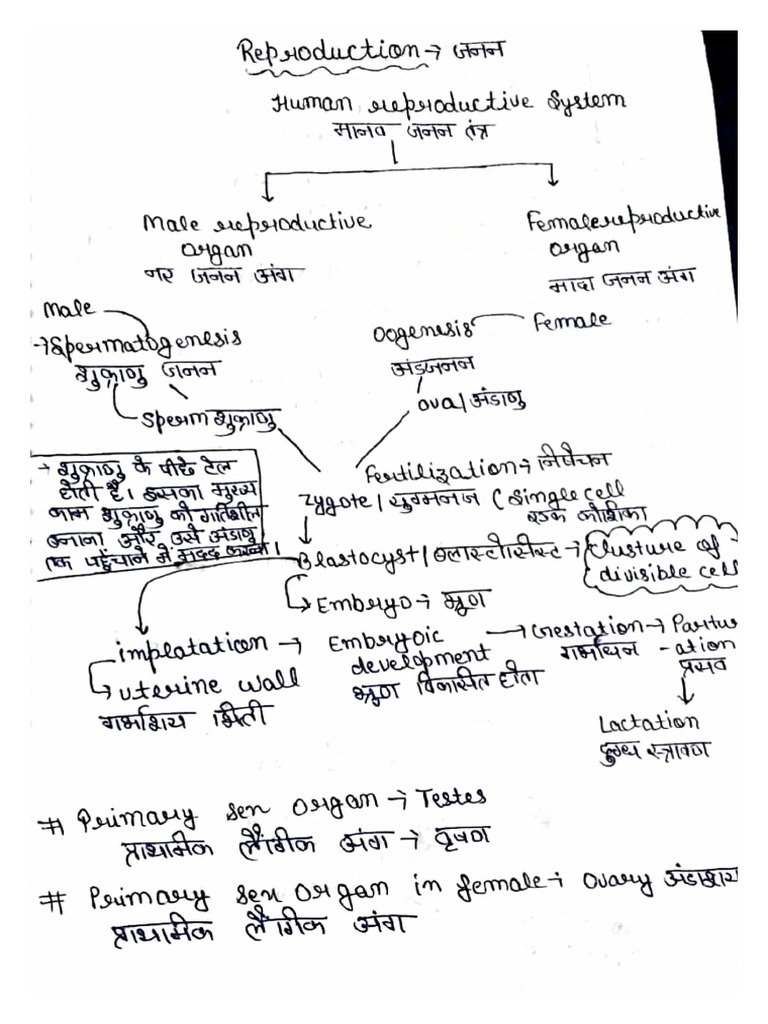 Reproduction → जनन
Human reproductive System
मानव जनन तंत्र
Male reproductive
organ
नर जनन अंग
Female reproductive
organ
मादा जनन अंग
Male
→ Spermatogenesis
शुक्राणु जनन
Sperm शुक्राणु
Oogenesis
Female
अंडजनन
ova / अंडाणु
→ शुक्राणु के पीछे टेल
होती है। इसका मुख्य
काम शुक्राणु को गतिशील
बनाना और उसे अंडाणु
तक पहुंचाने में मदद करना।
Fertilization → निषेचन
Zygote / युग्मनज ( Single cell
एक कोशिका
Blastocyst / ब्लास्टोसिस्ट → Clusture of
divisible cell
Embryo → भ्रूण
implatation → Embryoic development → Gestation → Partur-ation
गर्भाधन
प्रसव
→ uterine wall
गर्भाशय भित्ती
भ्रूण विकासित होता
Lactation
दुग्ध स्त्रावण
# Primary sex organ → Testes
प्राथमिक लैंगिक अंग → वृषण
# Primary sex organ in female → ovary अंडाशय
प्राथमिक लैंगिक अंग